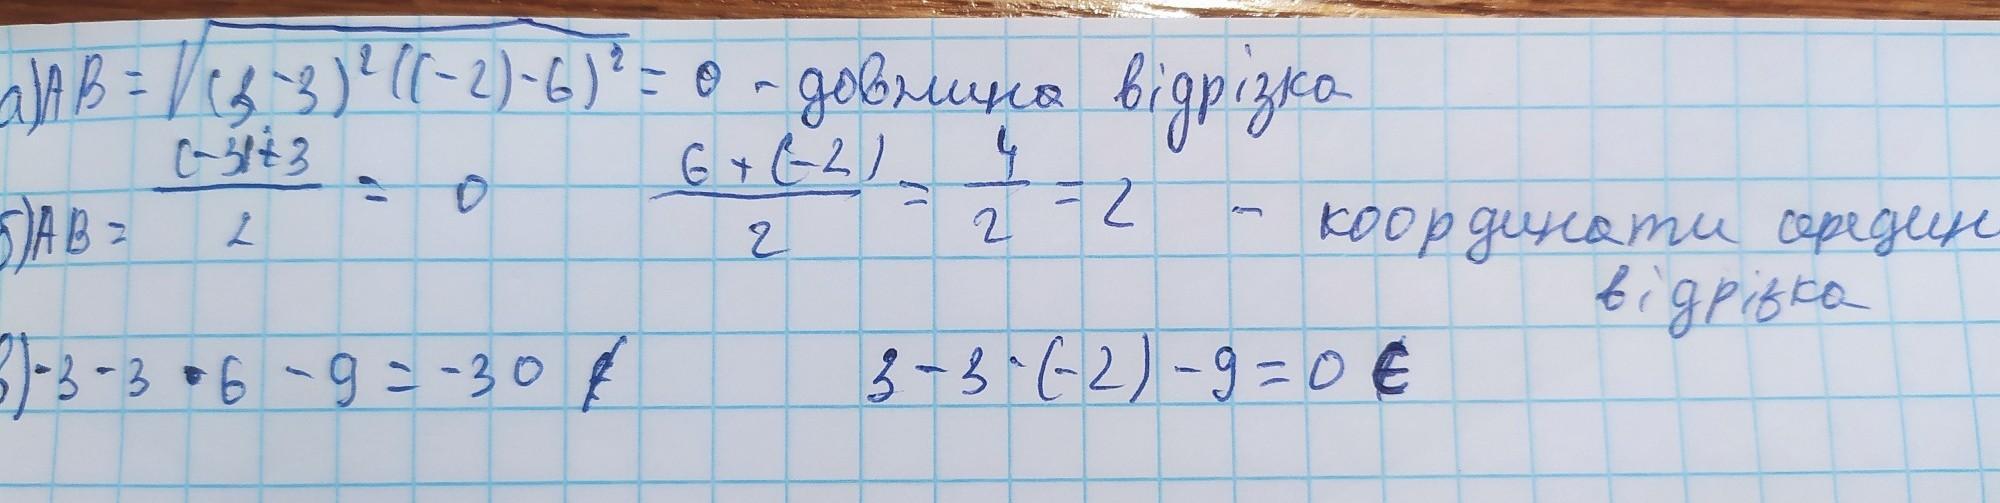 а) AB = √(3-3)²((-2)-6)² = 0 - довжина відрізка
б) AB = (-3)+3 / 2 = 0 6+(-2) / 2 = 4/2 = 2 - координати середин
відрізка
в) -3-3·6-9=-30 ∉ 3-3·(-2)-9=0 ∈